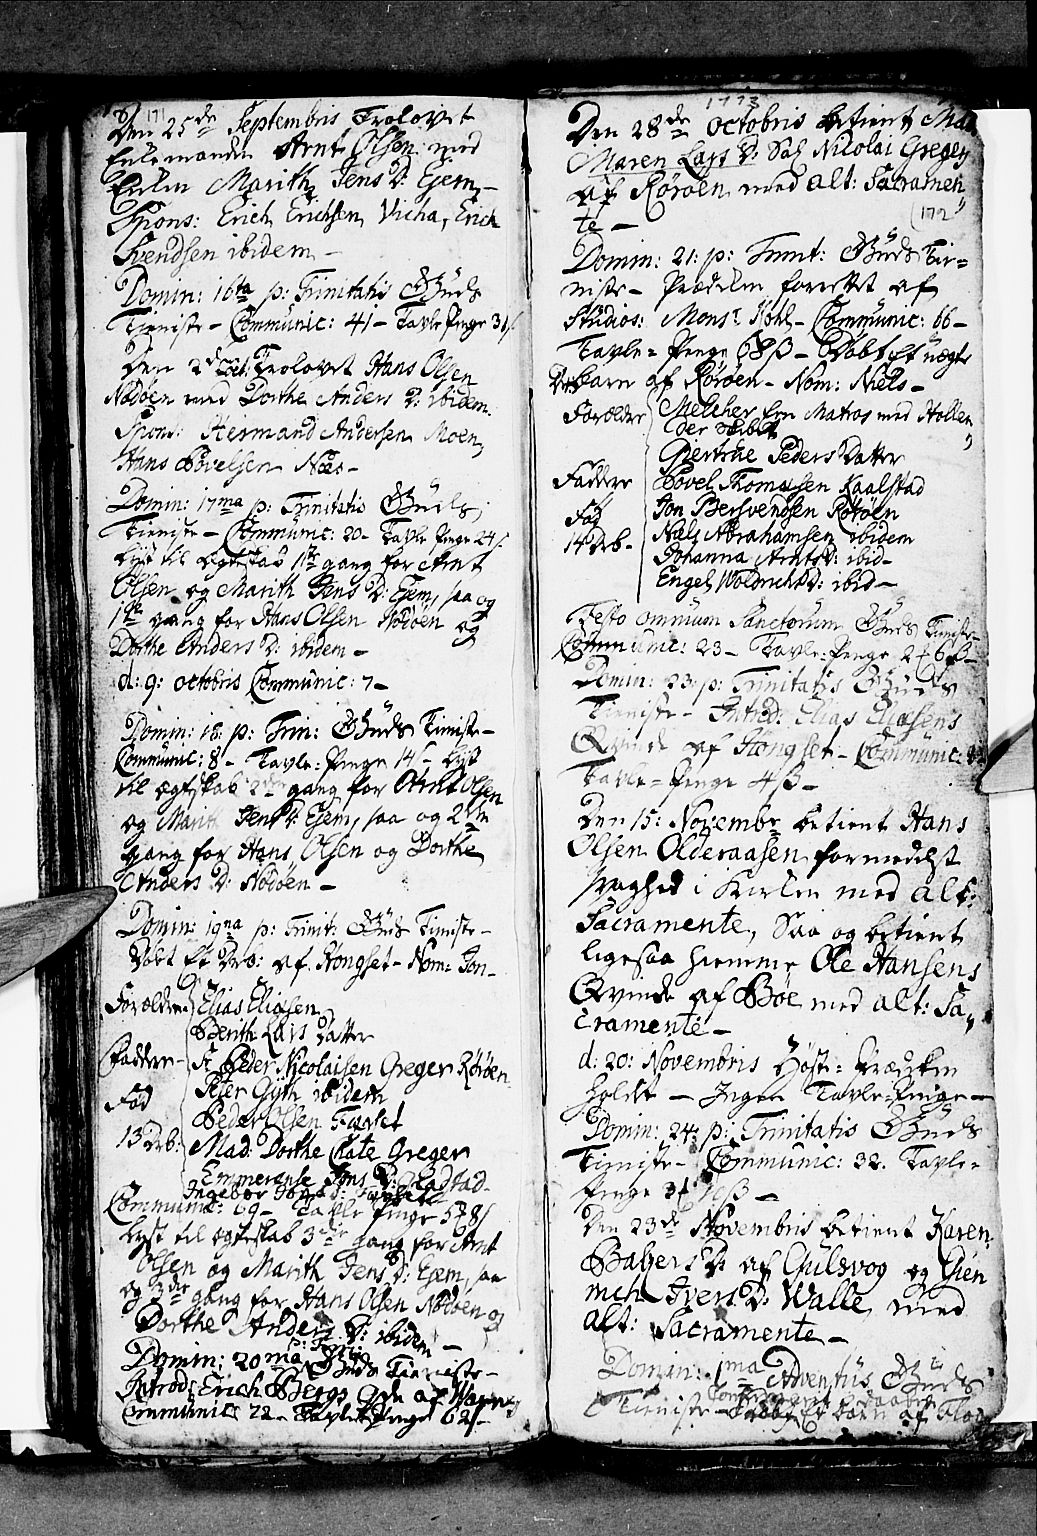 171
Den 25de Septembris Trolovet
Enkemanden Arnt Olsen med
Enken Marith Jens D: Ejem,
Spons: Erich Erichsen Vicha, Erich
Svendsen ibidem —
Domin: 16ta p: Trinitatis GUds
Tieniste — Communic: 41 — Tavle Penge 31
Den 2d Oct: Trolovet Hans Olsen
Nödöen med Dorthe Anders D: ibidem.
Spons: Hermand Andersen Moen,
Hans Povelsen Næs —
Domin: 17ma p: Trinitatis GUds
Tieniste — Communic: 20 — Tavle Penge 24
Lyst til Egteskab 1ste gang for Arnt
Olsen og Marith Jens D: Ejem, saa og
1ste gang for Hans Olsen Nödöen og
Dorthe Anders D: ibidem —
d: 9: Octobris Communic: 7 —
Domin: 18 p: Trin: GUds Tieniste —
Communic: 8 — Tavle-Penge 14 — Lyst
til Egteskab 2den gang for Arnt Olsen
og Marith Jens D: Ejem, saa og 2den
gang for Hans Olsen og Dorthe
Anders D: Nödöen —
Domin: 19na p: Trinit: GUds Tieniste —
Döbt Et Drb: af Stongset — Nom: Jon —
Forældre Elias Eliasen
Berith Lars Datter
Faddere — Sr Peder Nicolaisen Greger Röröen
Peter Gyth ibidem
Föd Peder Olsen
13 Drb: Mad: Dorthe Cate Greger
Emmerense Jens D:
Ingebor
Communic: 69 — Tavle Penge
Lyst til Egteskab 3die gang for Arnt
Olsen og Marith Jens D: Ejem, saa
og 3die gang for Hans Olsen Nödöen og
Dorthe Anders D: ibidem —
Domin: 20ma p: Trin: GUds Tieniste —
Introd: Erich Bergs Qde af
Communic: 22 — Tavle Penge 62
1773
Den 28de Octobris betient Mad
Maren Lars D: Sal Nicolai Gregers
af Röröen med alt: Sacramen
te —
(172
Domin: 21: p: Trinit: GUds Tie=
niste — Prædiken forrettet af
Studios: Monsr Kohl — Communic: 66 —
Tavle-Penge — Döbt Et uægte
Drbbarn af Röröen — Nom: Niels —
Forældre Melcher En Matros med Hollen
der Skibet
Giertrue Peders Datter
Faddere Povel Thomesen Kaalstad
Föd Jon Bersvendsen Röröen
14 Drb — Niels Abrahamsen ibidem
Johanna Arnts D: ibid —
Engel Woldrichs D: ibid —
Festo omnium Sanctorum GUds Tieniste —
Communic: 23 — Tavle-Penge 2 6ß
Domin: 23: p: Trinitatis GUds
Tieniste — Introd: Elias Eliasens
Qvinde af Stongset — Communic:
Tavle-Penge 4ß —
Den 15: Novembr betient Hans
Olsen Olderaasen formedelst
svaghed i Kirken med alt:
Sacramente, Saa og betient
ligesaa hiemme Ole Hansens
Qvinde af Böe med alt: Sa,,
cramente —
d: 20: Novembris Höst-Prædiken
holdt — Ingen Tavle-Penge —
Domin: 24: p: Trinitatis GUds
Tieniste — Communic: 32. Tavle-
Penge 3 10ß —
Den 23de Novembris betient Karen
Balzers D: af Gulsvog og Gien
meh Ivers D: Walle med
alt: Sacramente —
Domin: 1ma Adventus GUds
Tieniste — Döbt Et barn af